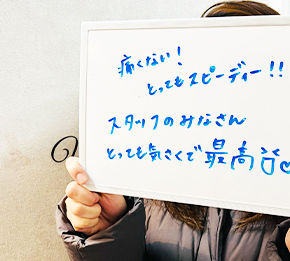 痛くない！
とってもスピーディー!!
スタッフのみなさん
とっても気さくで最高です